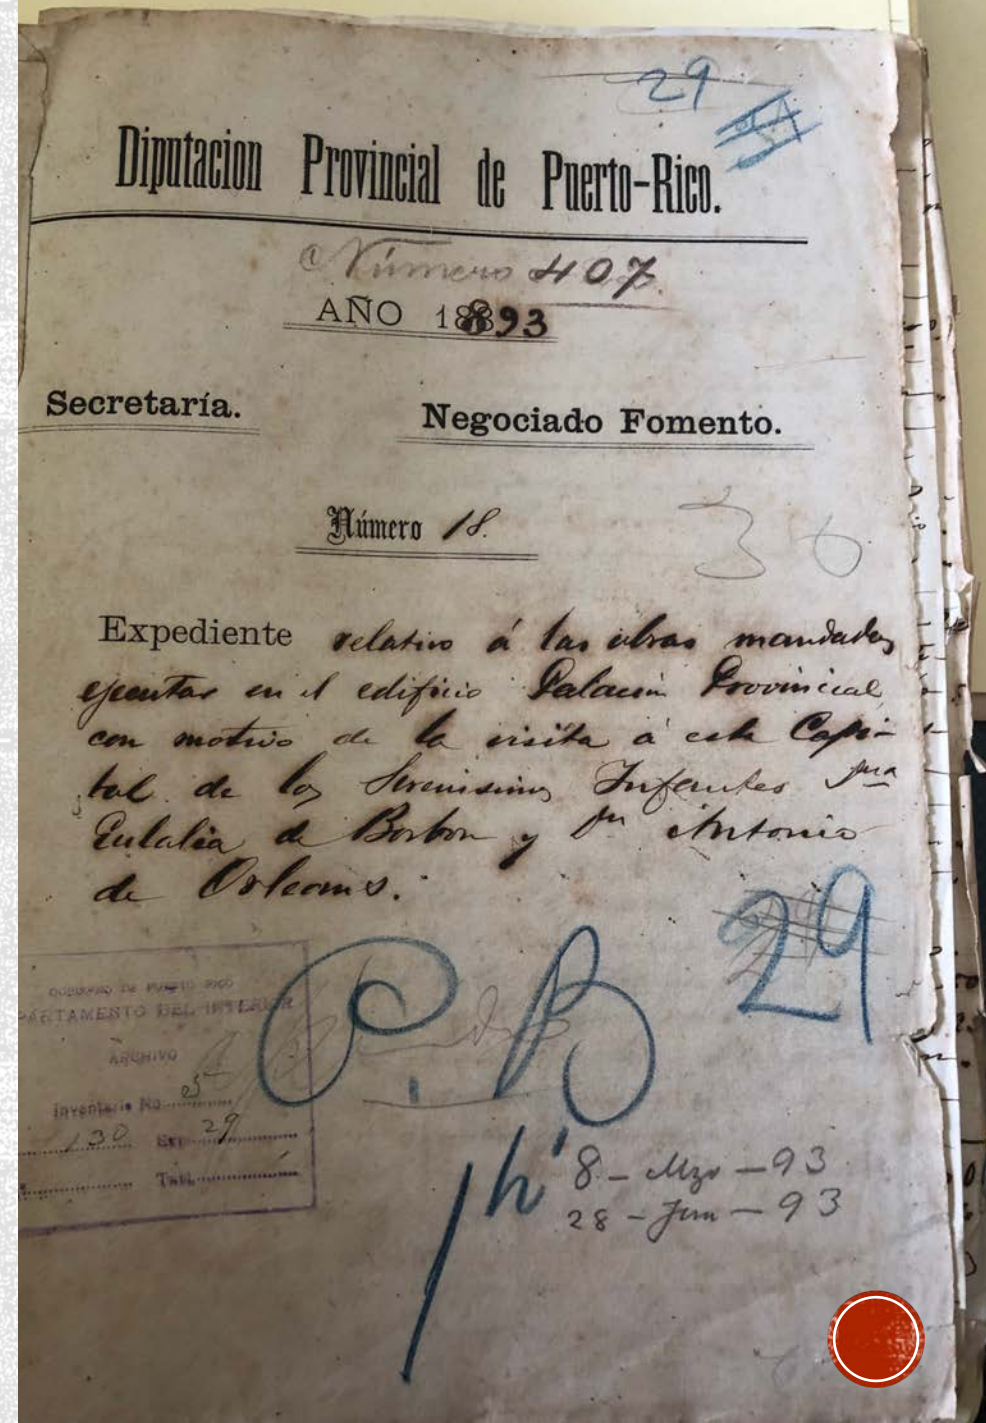 29
Diputacion Provincial de Puerto-Rico.
Número 407.
AÑO 1893
Secretaría.
Negociado Fomento.
Número 18.
36
Expediente relativo á las obras mandadas
ejecutar en el edificio Palacio Provincial
con motivo de la visita á esta Capi-
tal de los Serenisimos Infantes Dna
Eulalia de Borbon y Dn Antonio
de Orleans.
29
P.B
GOBIERNO DE PUERTO RICO
PARTAMENTO DEL INTERIOR
ARCHIVO
Inventario No. 5
130 Exp. 29
Tabl.
8 - Mzo - 93
28 - Jun - 93